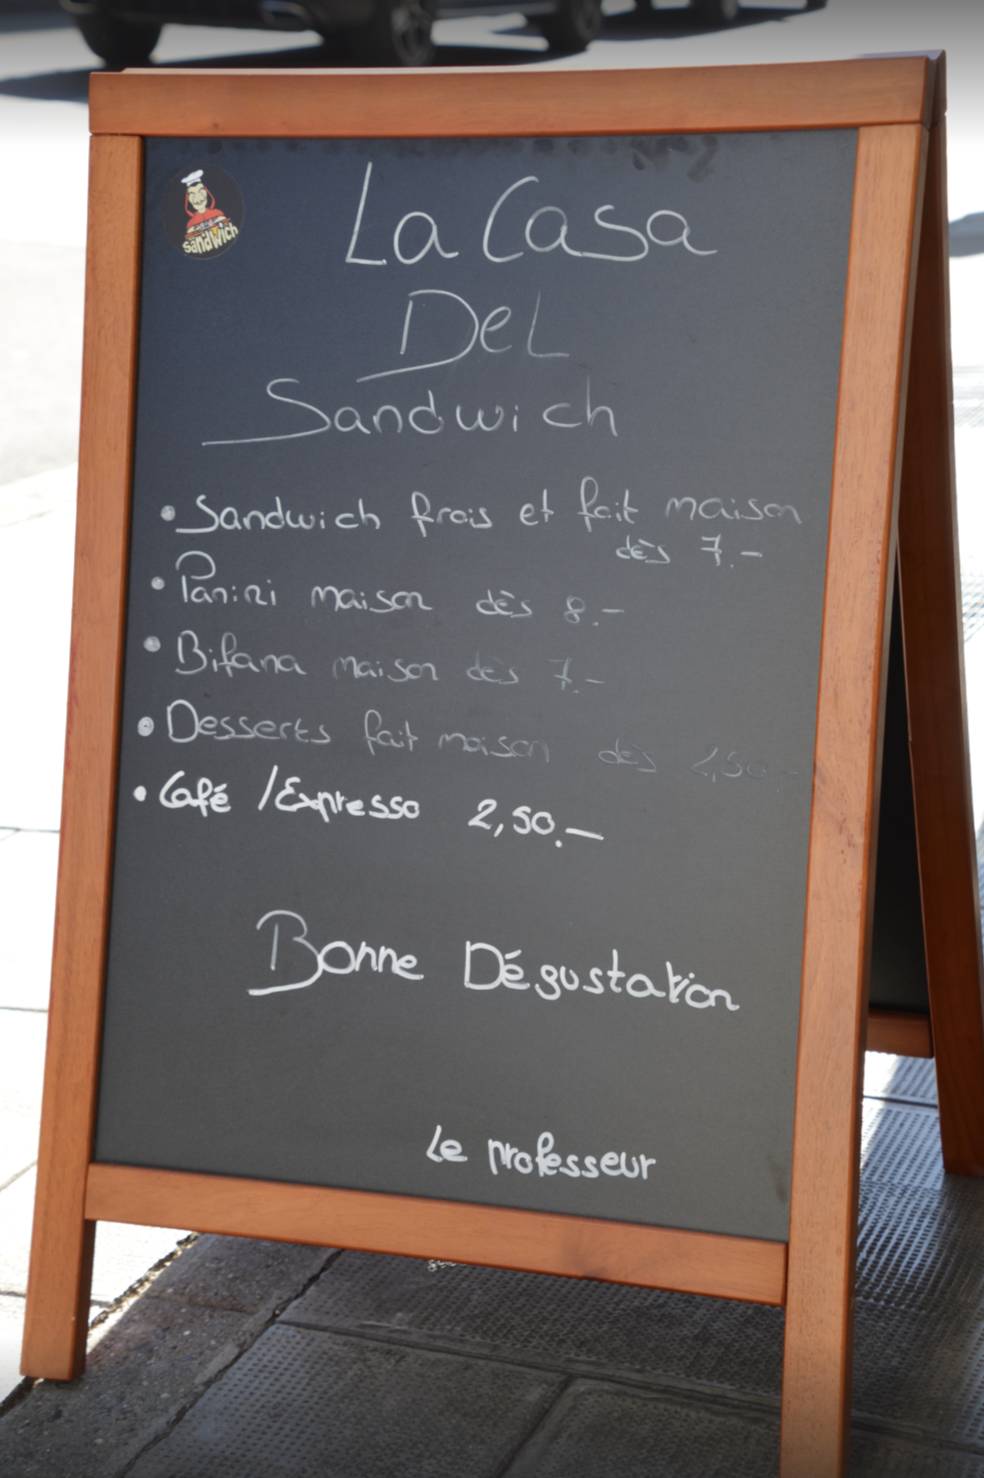 sandwich
La Casa
Del
Sandwich
• Sandwich frais et fait maison
dès 7.-
• Panini maison dès 8.-
• Bifana maison dès 7.-
• Desserts fait maison dès 2,50.-
• Café /Expresso 2,50.-
Bonne Dégustation
Le professeur